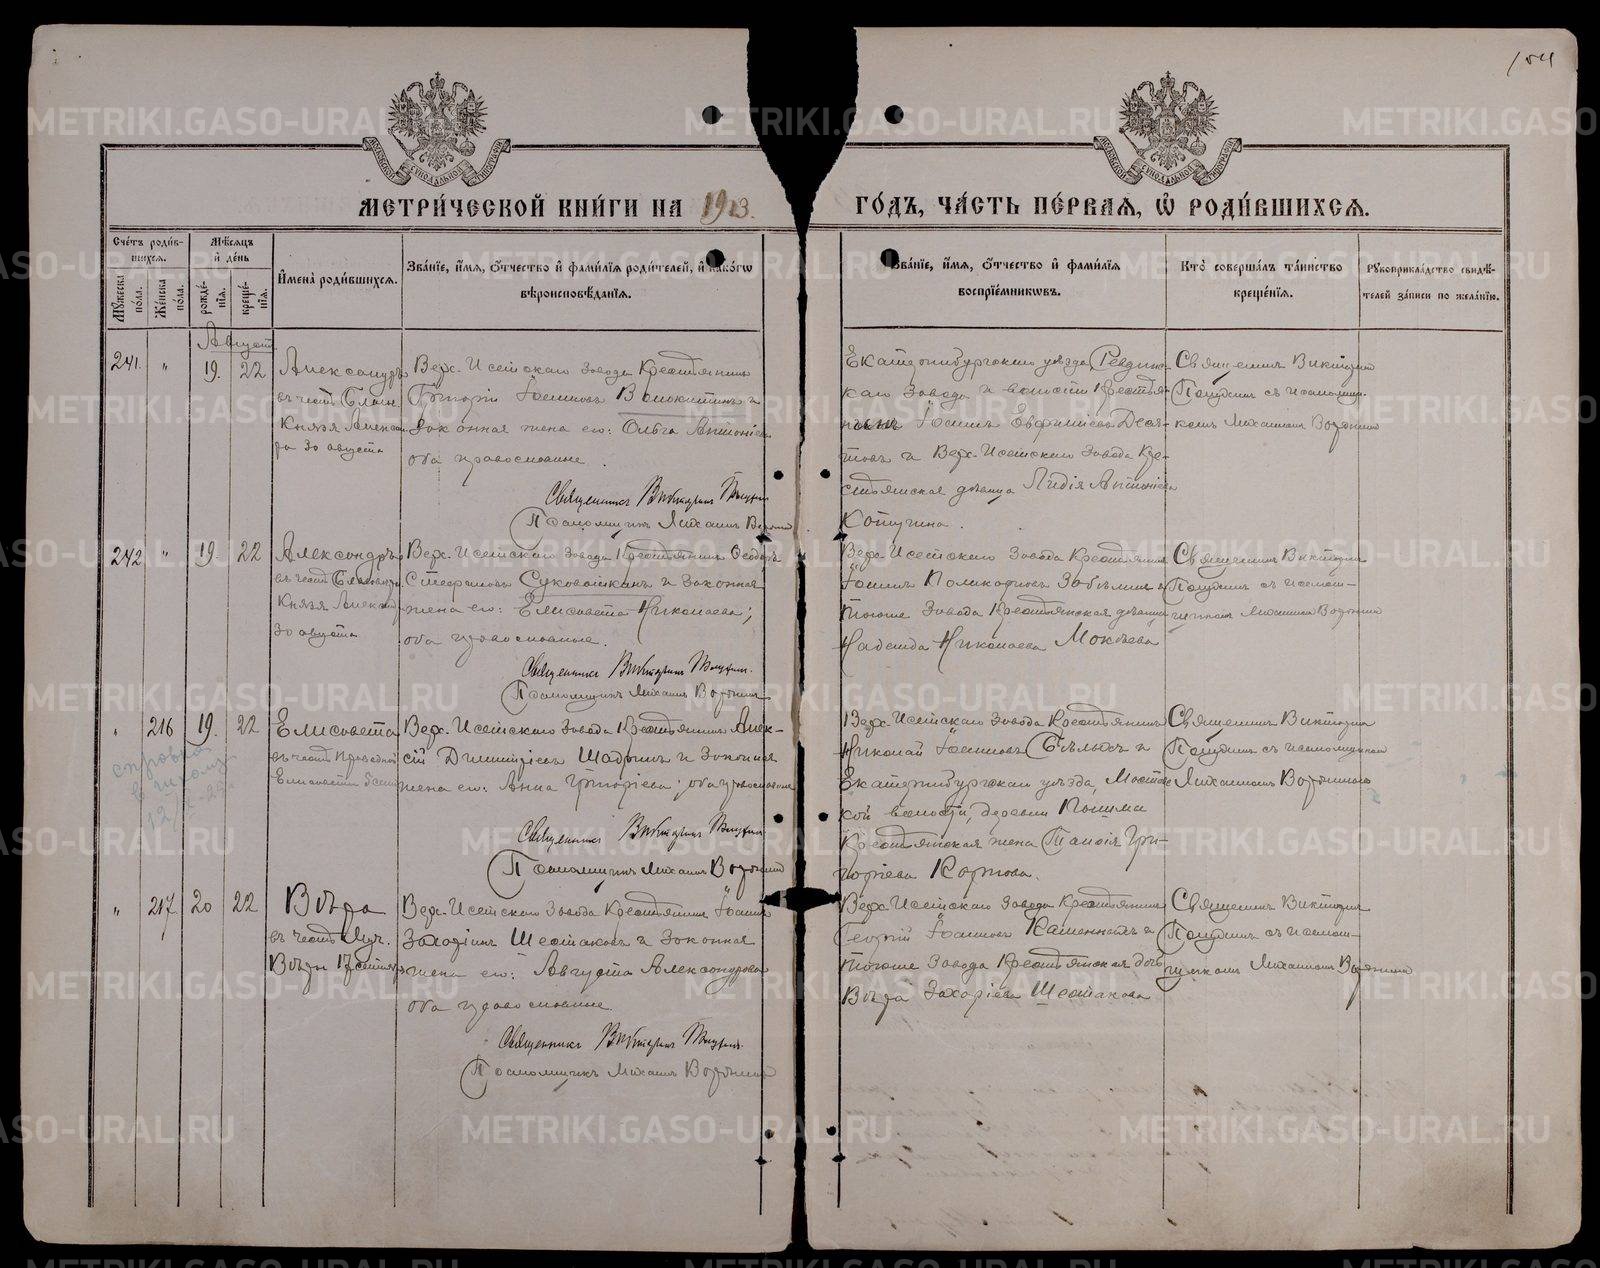 154
МЕТРИ́ЧЕСКОЙ КНИ́ГИ НА 1903. ГО́ДЪ, ЧА́СТЬ ПЕ́РВАѦ, Ѡ҆ РОДИ́ВШИХСѦ.
Счетъ роди́вшихсѧ.
Мѣ́сѧцъ и҆ де́нь
Мꙋ́жеска по́ла.
Же́нска по́ла.
рожде́нїѧ.
креще́нїѧ.
И҆мена̀ роди́вшихсѧ.
Зва́нїе, и҆́мѧ, ѻ҆́тчество и҆ фами́лїѧ роди́телей, и҆ како́гѡ
вѣроисповѣ́данїѧ.
Зва́нїе, и҆́мѧ, ѻ҆́тчество и҆ фами́лїѧ
воспрїе́мникѡвъ.
Кто̀ соверша́лъ та́инство
креще́нїѧ.
Рꙋкоприкла́дство свидѣ́-
телей за́писи по жела́нїю.
Августъ
241. " 19. 22
Александръ
въ честь Благ.
Князя Алексан
ра 30 августа
Верх-Исетскаго Завода Крестьянинъ
Григорій Іоанновъ Волокитинъ и
Законная жена его: Ольга Антоніева
оба православные.
Священникъ Викторинъ
Псаломщикъ Михаилъ
Екатеринбургскаго уѣзда, Ревдин-
скаго Завода и волости Крестья-
нинъ Іоаннъ Евфиміевъ Деся-
товъ и Верх-Исетскаго Завода Кре-
стьянская дѣвица Лидія Антоніева
Священникъ Викторинъ
съ псаломщи-
комъ Михаиломъ
242 " 19. 22
Александръ
въ честь Благовѣр.
Князя Алексан
30 августа
Верх-Исетскаго Завода Крестьянинъ Ѳеодоръ
Стефановъ Суковаткинъ и Законная
жена его: Елисавета Николаева;
оба православные.
Священникъ Викторинъ
Псаломщикъ Михаилъ
Верх-Исетскаго Завода Крестьянинъ
Іоаннъ Поликарповъ и
тогоже Завода Крестьянская дѣвица
Надежда Николаева Мокѣева
Священникъ Викторинъ
съ псалом-
щикомъ Михаиломъ
" 216 19. 22
Елисавета
въ честь Праведной
Елисаветы 5 сент
справка
12/X-25
Верх-Исетскаго Завода Крестьянинъ Алек-
сій Димитріевъ Шадринъ и Законная
жена его: Анна Григоріева; оба православные
Священникъ Викторинъ
Псаломщикъ Михаилъ
Верх-Исетскаго Завода Крестьянинъ
Николай Іоанновъ и
Екатеринбургскаго уѣзда,
кой волости, деревни
Крестьянская жена Таисія Гри-
горіева Карпова.
Священникъ Викторинъ
съ псаломщикомъ
Михаиломъ
" 217 20 22
Вѣра
въ честь Муч.
Вѣры 17 сентября
Верх-Исетскаго Завода Крестьянинъ Іоаннъ
Захаріинъ Шестаковъ и Законная
жена его: Августа Александрова
оба православные.
Священникъ Викторинъ
Псаломщикъ Михаилъ
Верх-Исетскаго Завода Крестьянинъ
Георгій Іоанновъ и
тогоже Завода Крестьянская дочь
Вѣра Захаріева Шестакова
Священникъ Викторинъ
съ псалом-
щикомъ Михаиломъ
METRIKI.GASO-URAL.RU